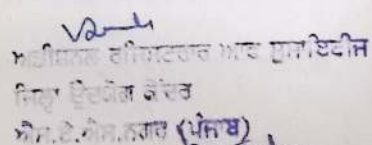 ਅਡੀਸ਼ਨਲ ਰਜਿਸਟਰਾਰ ਆਫ ਸੁਸਾਇਟੀਜ
ਜਿਲ੍ਹਾ ਉਦਯੋਗ ਕੇਂਦਰ
ਐਸ.ਏ.ਐਸ.ਨਗਰ (ਪੰਜਾਬ)